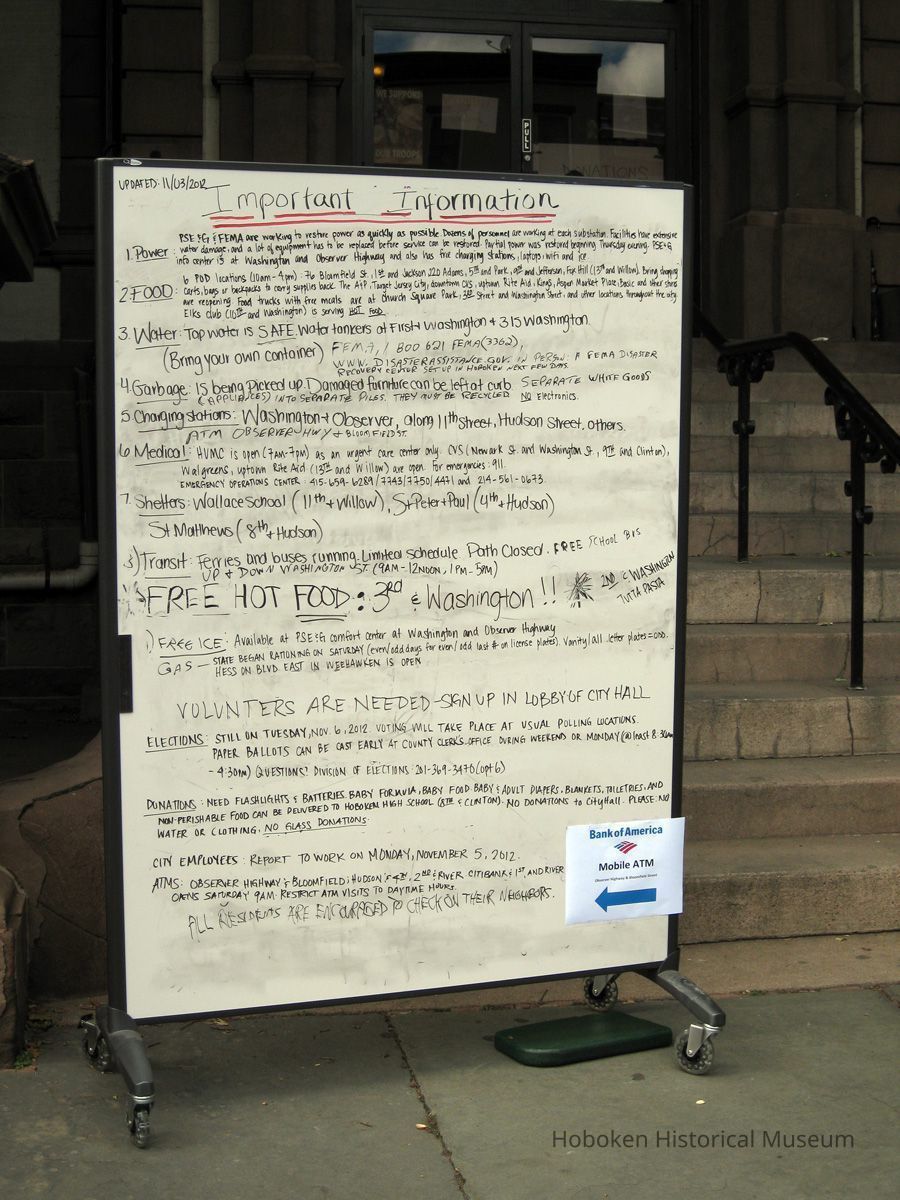 WE SUPPORT
OUR TROOPS
PULL
DONATIONS
UPDATED: 11/03/2012
Important Information
PSE&G & FEMA are working to restore power as quickly as possible. Dozens of personnel are working at each substation. Facilities have extensive
1. Power: water damage, and a lot of equipment has to be replaced before service can be restored. Partial power was restored beginning Thursday evening. PSE+G
info center is at Washington and Observer Highway and also has five charging stations, laptops, wifi and ice.
6 POD locations (10am-4pm): 76 Bloomfield St., 1st and Jackson, 220 Adams, 5th and Park, 9th and Jefferson, Fox Hill (13th and Willow). Bring shopping
2. FOOD: carts, bags or backpacks to carry supplies back. The A&P, Target Jersey City, downtown CVS, uptown Rite Aid, Kings, Aspen Market Place, Basic and other stores
are reopening. Food trucks with free meals are at Church Square Park, 3rd Street and Washington Street, and other locations throughout the city.
Elks club (10th and Washington) is serving HOT FOOD.
3. Water: Tap water is SAFE. Water tankers at First + Washington + 315 Washington.
(Bring your own container) FEMA, 1 800 621 FEMA (3362),
WWW. DISASTERASSISTANCE.GOV. IN PERSON: A FEMA DISASTER
RECOVERY CENTER SET UP IN HOBOKEN NEXT FEW DAYS.
4. Garbage: Is being picked up. Damaged furniture can be left at curb. SEPARATE WHITE GOODS
(APPLIANCES) INTO SEPARATE PILES. THEY MUST BE RECYCLED NO Electronics.
5. Charging stations: Washington + Observer, along 11th Street, Hudson Street, others.
ATM OBSERVER HWY + BLOOMFIELD ST.
6. Medical: HUMC is open (7am-7pm) as an urgent care center only. CVS (Newark St. and Washington St., 9th and Clinton),
Walgreens, uptown Rite Aid (13th and Willow) are open. For emergencies: 911.
EMERGENCY OPERATIONS CENTER: 415-659-6289/7743/7750/4471 and 214-561-0673.
7. Shelters: Wallace School (11th + Willow), St Peter + Paul (4th + Hudson)
St Matthews (8th + Hudson)
8) Transit: Ferries and buses running. Limited schedule. Path Closed. FREE SCHOOL BUS
UP & DOWN WASHINGTON ST. (9AM-12NOON, 1PM-5PM)
FREE HOT FOOD: 3RD & Washington!! 2ND & WASHINGTON
TUTTA PASTA
1) FREE ICE: Available at PSE&G comfort center at Washington and Observer Highway
GAS — STATE BEGAN RATIONING ON SATURDAY (even/odd days for even/odd last # on license plates). Vanity/all letter plates = ODD.
HESS ON BLVD EAST IN WEEHAWKEN IS OPEN
VOLUNTERS ARE NEEDED - SIGN UP IN LOBBY OF CITY HALL
ELECTIONS: STILL ON TUESDAY, NOV. 6, 2012. VOTING WILL TAKE PLACE AT USUAL POLLING LOCATIONS.
PAPER BALLOTS CAN BE CAST EARLY AT COUNTY CLERK'S OFFICE DURING WEEKEND OR MONDAY (@ least 8:30am
- 4:30pm) QUESTIONS? DIVISION OF ELECTIONS: 201-369-3470 (opt 6)
DONATIONS: NEED FLASHLIGHTS & BATTERIES. BABY FORMULA, BABY FOOD, BABY & ADULT DIAPERS, BLANKETS, TOILETRIES, AND
NON-PERISHABLE FOOD CAN BE DELIVERED TO HOBOKEN HIGH SCHOOL (8TH & CLINTON). NO DONATIONS to City Hall. PLEASE NO
WATER OR CLOTHING. NO GLASS DONATIONS.
CITY EMPLOYEES: REPORT TO WORK ON MONDAY, NOVEMBER 5, 2012.
ATMS: OBSERVER HIGHWAY & BLOOMFIELD; HUDSON & 4th, 2nd & RIVER CITIBANK @ 1ST, AND RIVER
OPENS SATURDAY 9AM. RESTRICT ATM VISITS TO DAYTIME HOURS.
ALL RESIDENTS ARE ENCOURAGED TO CHECK ON THEIR NEIGHBORS.
Bank of America
Mobile ATM
Observer Highway & Bloomfield Street
Hoboken Historical Museum